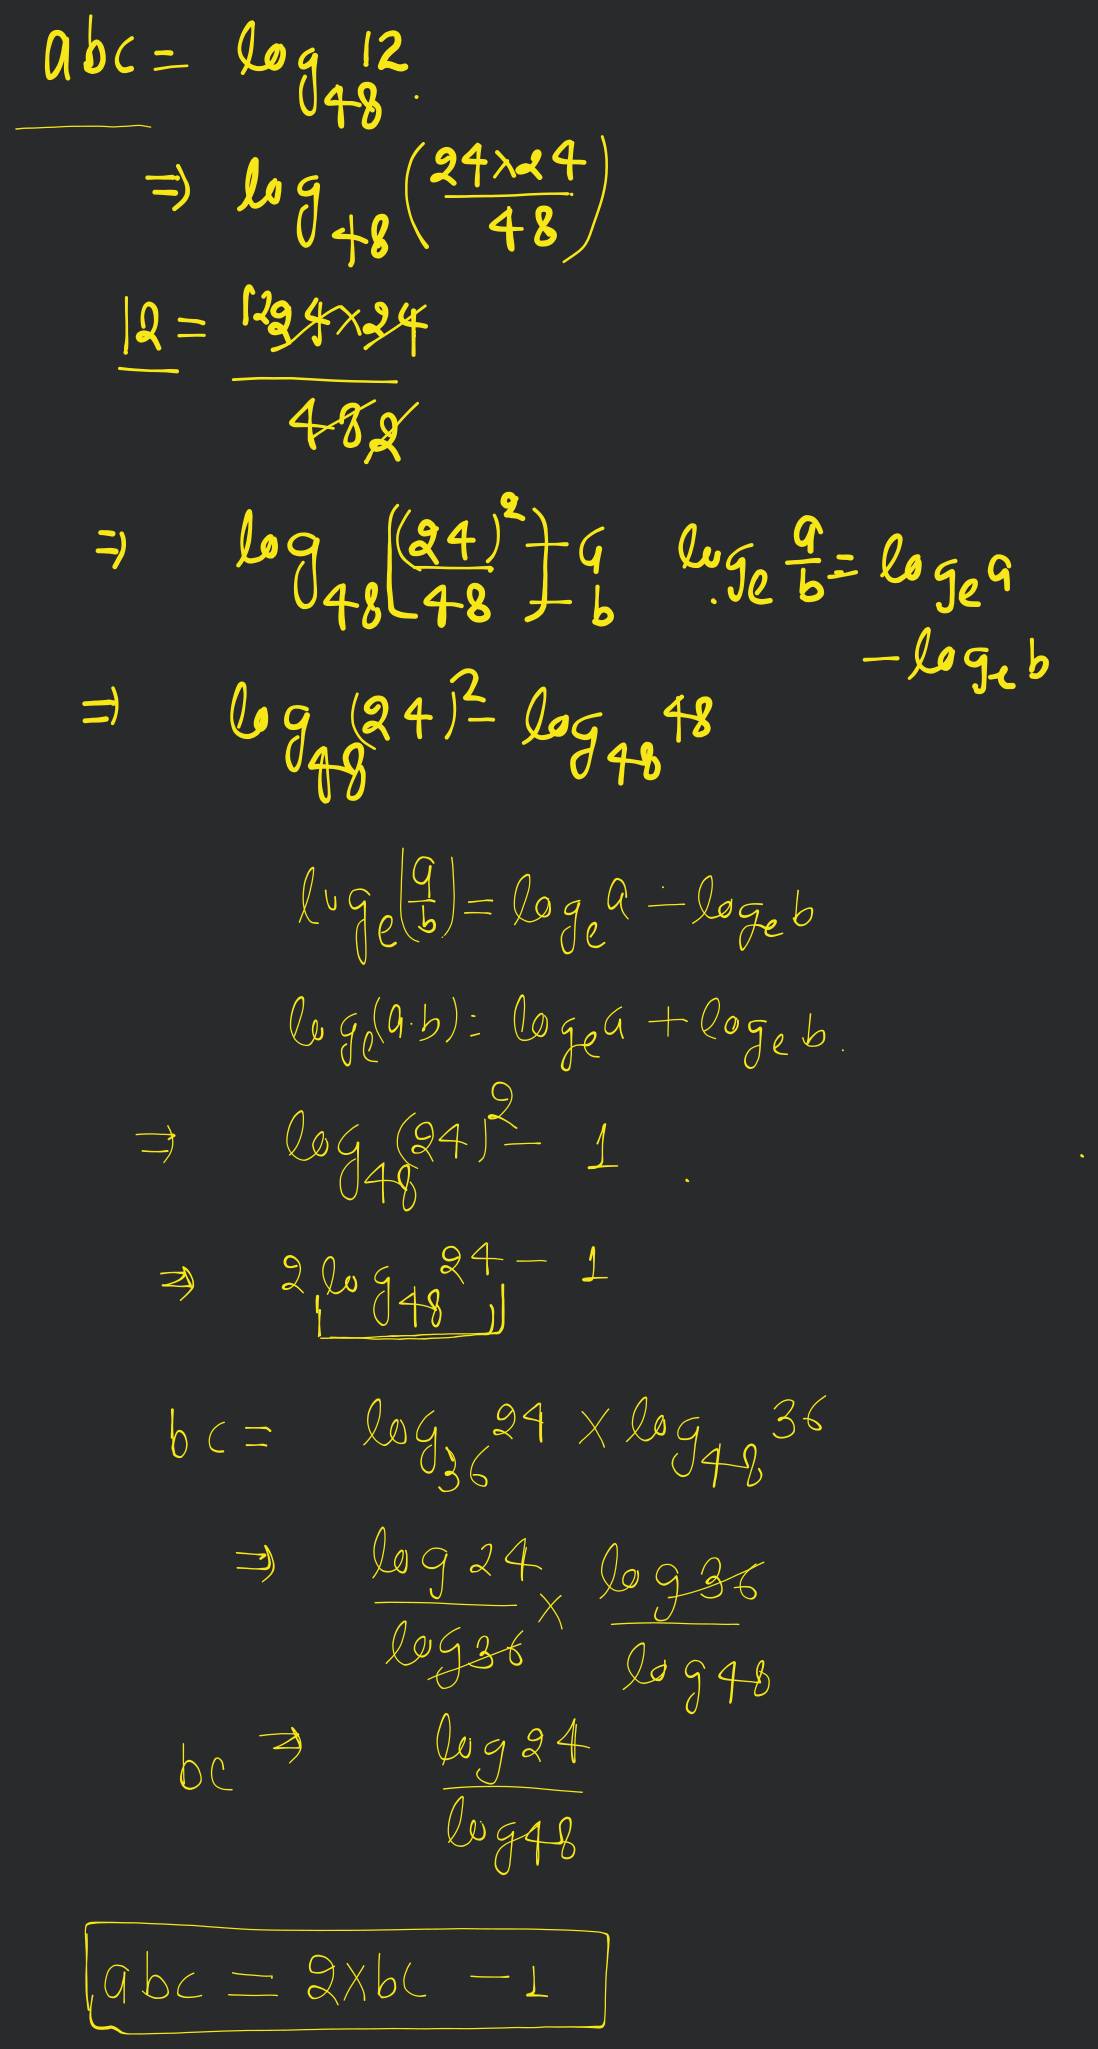 abc = log₄₈ 12
⇒ log₄₈ (24×24/48)
12 = 12 24×24 / 48 2
⇒ log₄₈ [(24)²/48] a/b logₑ a/b = logₑ a
− logₑ b
⇒ log₄₈ (24)² − log₄₈ 48
logₑ(a/b) = logₑ a − logₑ b
logₑ(a·b) = logₑ a + logₑ b.
⇒ log₄₈ (24)² − 1
⇒ 2 log₄₈ 24 − 1
bc = log₃₆ 24 × log₄₈ 36
⇒ log 24/log 36 × log 36/log 48
bc ⇒ log 24/log 48
abc = 2×bc − 1